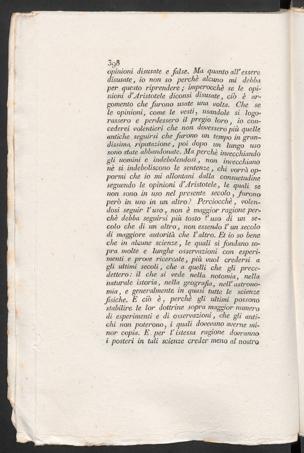 398
opinioni disusate e false. Ma quanto all'essere
disusate, io non so perchè alcuno mi debba
per questo riprendere; imperocchè se le opi-
nioni d'Aristotele diconsi disusate, ciò è ar-
gomento che furono usate una volta. Che se
le opinioni, come le vesti, usandole si logo-
rassero e perdessero il pregio loro, io con-
cederei volentieri che non dovessero più quelle
antiche seguirsi che furono un tempo in gran-
dissima riputazione, poi dopo un lungo uso
sono state abbandonate. Ma perchè invecchiando
gli uomini e indebolendosi, non invecchiano
nè si indeboliscono le sentenze, chi vorrà op-
pormi che io mi allontani dalla consuetudine
seguendo le opinioni d'Aristotele, le quali se
non sono in uso nel presente secolo, furono
però in uso in un altro? Perciocchè, volen-
dosi seguir l'uso, non è maggior ragione per-
chè debba seguirsi più tosto l'uso di un se-
colo che di un altro, non essendo l'un secolo
di maggiore autorità che l'altro. Et io so bene
che in alcune scienze, le quali si fondano so-
pra molte e lunghe osservazioni con esperi-
menti e prove ricercate, più vuol credersi a
gli ultimi secoli, che a quelli che gli prece-
dettero: il che si vede nella notomia, nella
naturale istoria, nella geografia, nell'astrono-
mia, e generalmente in quasi tutte le scienze
fisiche. E ciò è, perchè gli ultimi possono
stabilire le lor dottrine sopra maggior numero
di esperimenti e di osservazioni, che gli anti-
chi non poterono, i quali doveano averne mi-
nor copia. E per l'istessa ragione dovranno
i posteri in tali scienze creder meno al nostro